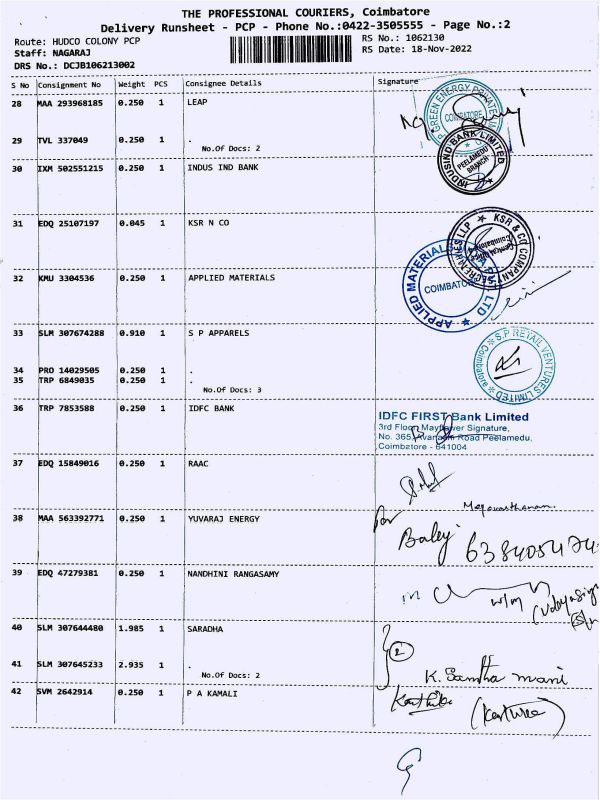 THE PROFESSIONAL COURIERS, Coimbatore
Delivery Runsheet - PCP - Phone No.:0422-3505555 - Page No.:2
Route: HUDCO COLONY PCP
RS No.: 1062130
Staff: NAGARAJ
RS Date: 18-Nov-2022
DRS No.: DCJB106213002
S No Consignment No Weight PCS Consignee Details Signature
28 MAA 293968185 0.250 1 LEAP
GREEN ENERGY PRIVATE
COIMBATORE
29 TVL 337049 0.250 1 .
No.Of Docs: 2
30 IXM 502551215 0.250 1 INDUS IND BANK
INDUSIND BANK LIMITED
PEELAMEDU
BRANCH
31 EDQ 25107197 0.045 1 KSR N CO
KSR & CO COMPANY SECRETARIES LLP
32 KMU 3304536 0.250 1 APPLIED MATERIALS
APPLIED MATERIALS
LTD
COIMBATORE
33 SLM 307674288 0.910 1 S P APPARELS
S.P. RETAIL VENTURES LIMITED
Coimbatore
34 PRO 14029505 0.250 1 .
35 TRP 6849035 0.250 1 .
No.Of Docs: 3
36 TRP 7853588 0.250 1 IDFC BANK
IDFC FIRST Bank Limited
3rd Floor Mayflower Signature,
No. 365, Avanashi Road Peelamedu,
Coimbatore - 641004
37 EDQ 15849016 0.250 1 RAAC
38 MAA 563392771 0.250 1 YUVARAJ ENERGY
39 EDQ 47279381 0.250 1 NANDHINI RANGASAMY
40 SLM 307644480 1.985 1 SARADHA
2
41 SLM 307645233 2.935 1 .
No.Of Docs: 2
K. Santha mani
42 SVM 2642914 0.250 1 P A KAMALI